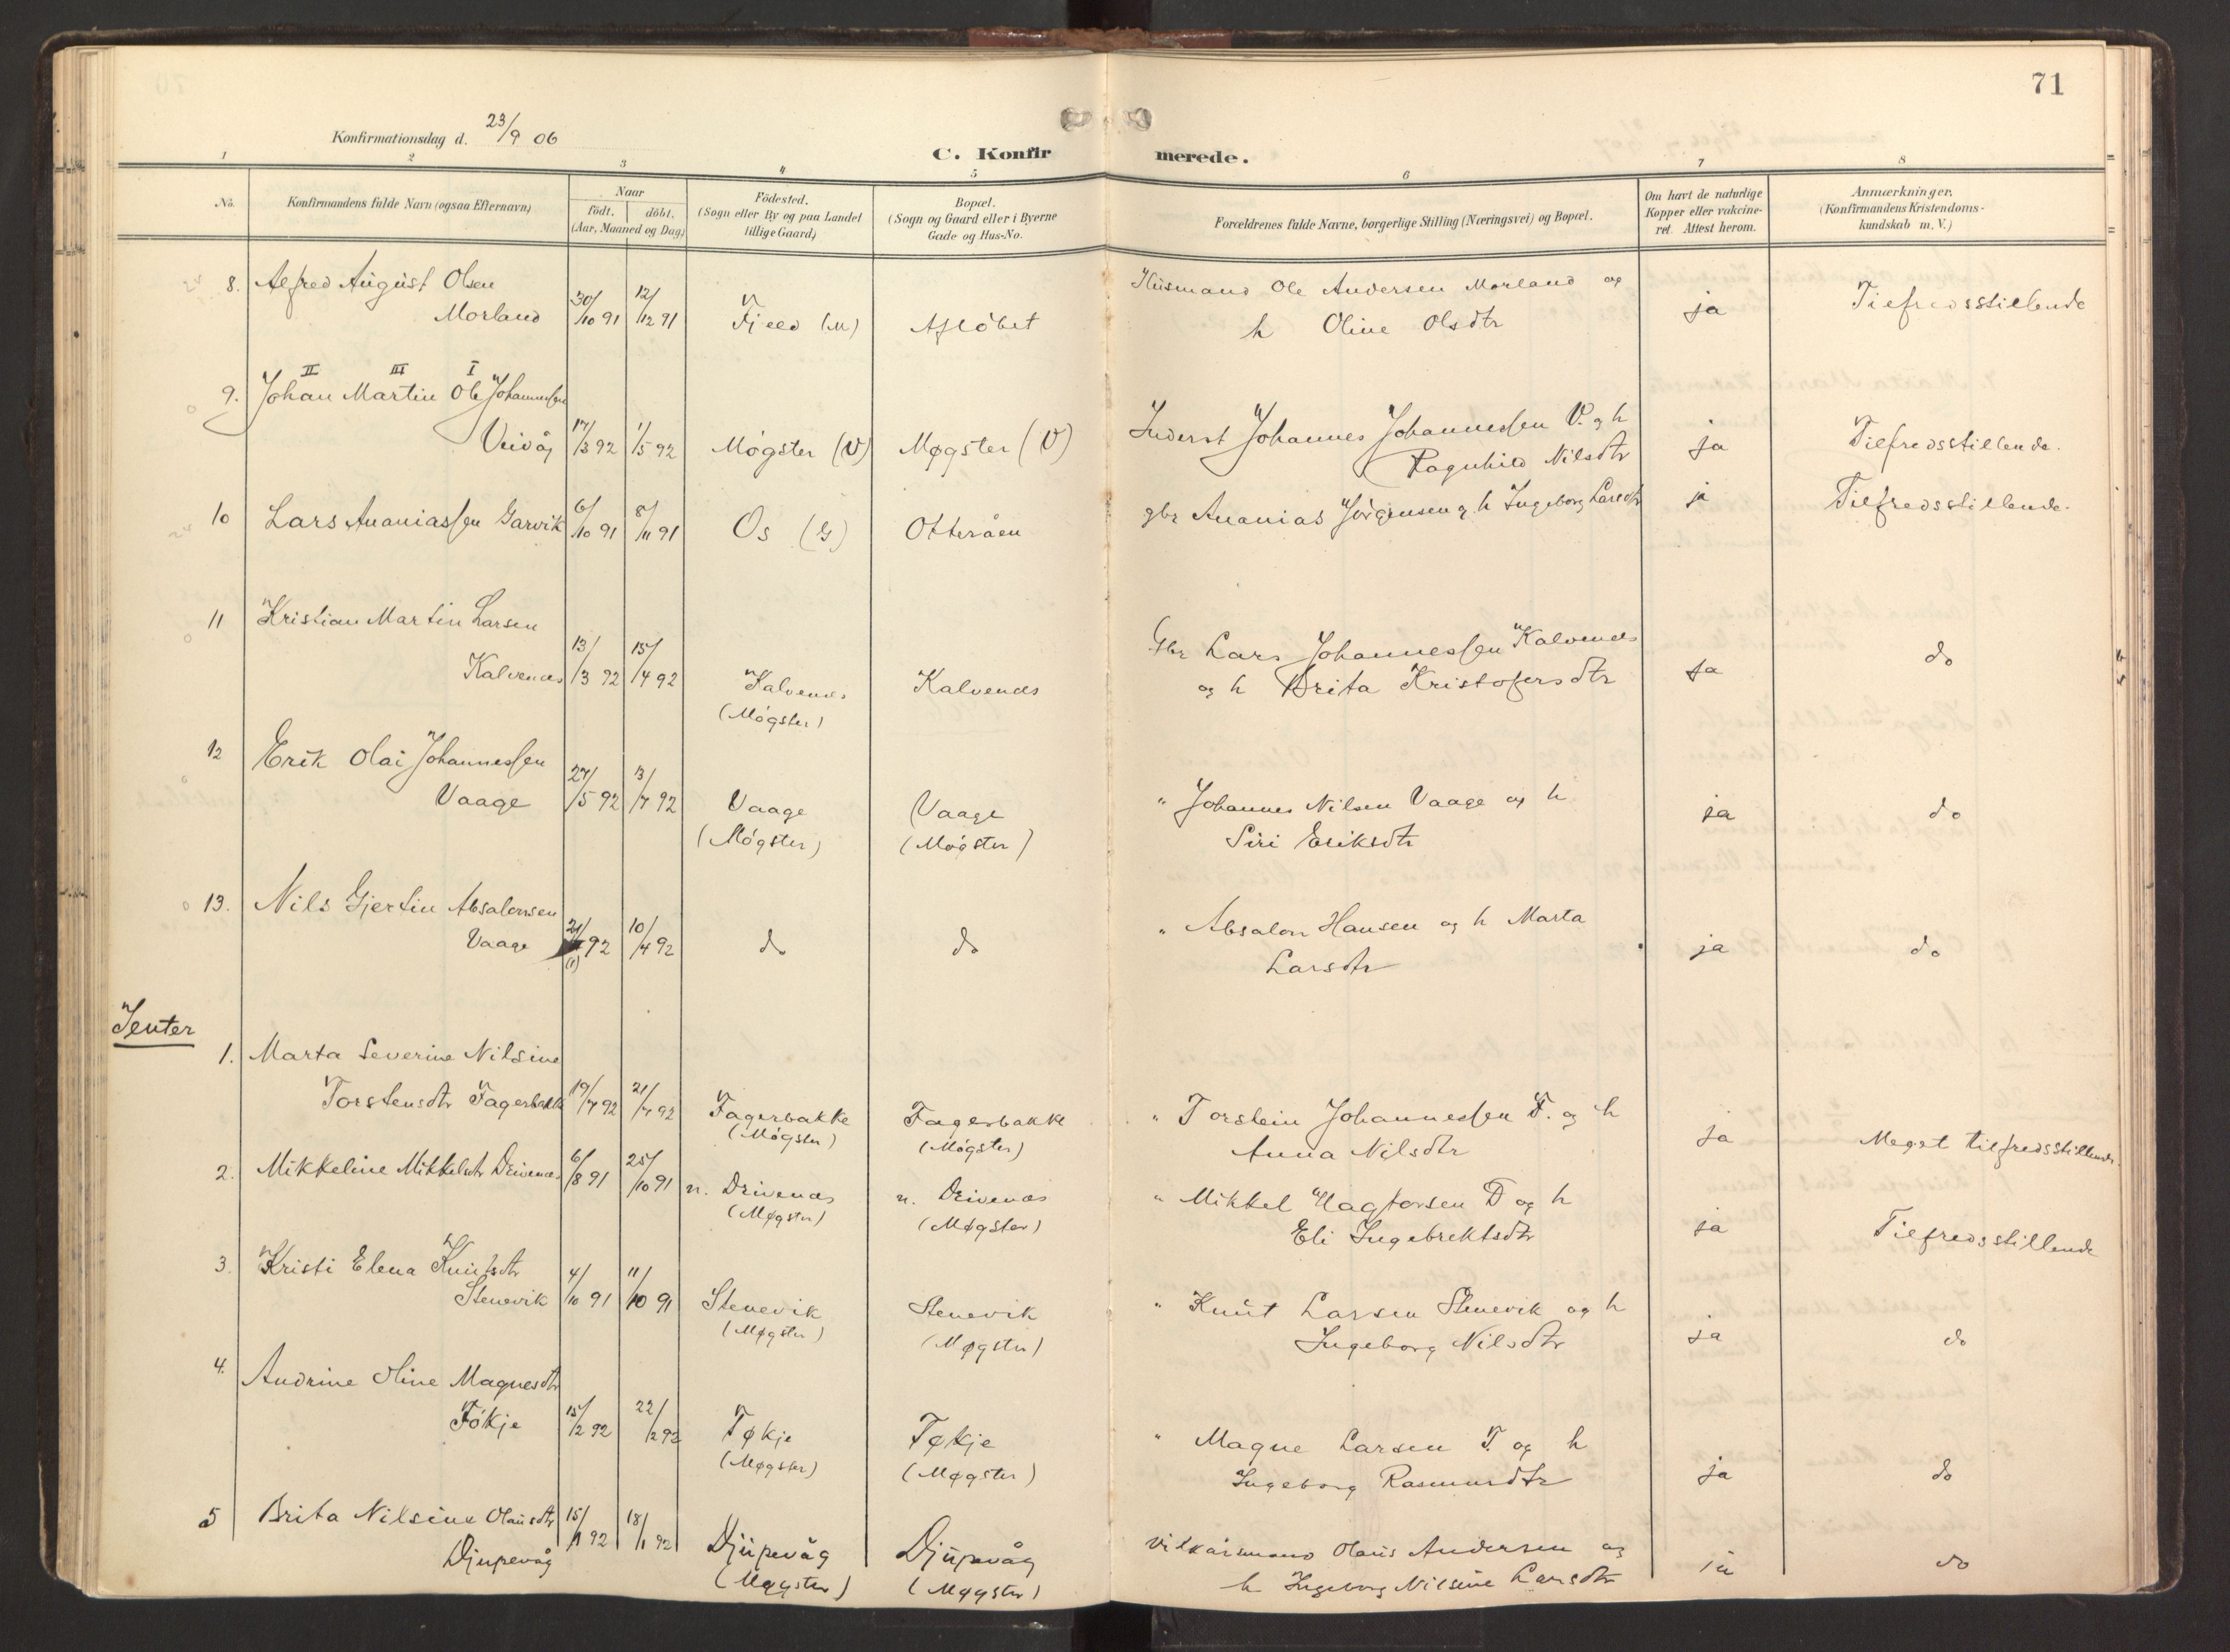 71
Konfirmationsdag d. 23/9 06
C. Konfirmerede.
1 2 3 4 5 6 7 8
No. Konfirmandens fulde Navn (ogsaa Efternavn) Naar födt. döbt. (Aar, Maaned og Dag) Födested. (Sogn eller By og paa Landet tillige Gaard) Bopæl. (Sogn og Gaard eller i Byerne Gade og Hus-No. Forældrenes fulde Navne, borgerlige Stilling (Næringsvei) og Bopæl. Om havt de naturlige Kopper eller vakcineret. Attest herom. Anmærkninger. (Konfirmandens Kristendomskundskab m. V.)
8. Alfred August Olsen Husmand Ole Andersen Morland og
Morland 30/10 91 12/12 91 Fjeld (M) h Oline Olsdtr ja Tilfredsstillende
II III I
9. Johan Martin Ole Johannessen
Veivåg 17/3 92 1/5 92 Møgster (V) Møgster (V) Inderst Johannes Johannessen V. og h
Ragnhild Nilsdtr ja Tilfredsstillende.
10 Lars Ananiassen Garvik 6/10 91 8/11 91 Os (G) Otteråen gbr Ananias Jörgensen og h Ingeborg Larsdtr ja Tilfredsstillende.
11 Kristian Martin Larsen
Kalvenæs 13/3 92 15/4 92 Kalvenæs Kalvenæs Gbr Lars Johannessen Kalvenæs
(Møgster) og h Brita Kristofersdtr ja do
12 Erik Olai Johannessen
Vaage 27/5 92 3/7 92 Vaage Vaage " Johannes Nilsen Vaage og h
(Møgster) (Møgster) Siri Eriksdtr ja do
13. Nils Gjertin Absalonsen
Vaage 92 10/4 92 do do " Absalon Hansen og h Marta
Larsdtr ja do
Jenter
1. Marta Severine Nilsine
Torstensdtr Fagerbakke 19/7 92 21/7 92 Fagerbakke Fagerbakke " Torstein Johannessen F. og h
(Møgster) (Møgster) Anna Nilsdtr ja Meget tilfredsstillende.
2. Mikkeline Mikkelsdtr Drivenæs 6/8 91 25/10 91 n. Drivenæs n. Drivenæs " Mikkel D og h
(Møgster) (Møgster) Eli Ingebrektsdtr ja Tilfredsstillende
3. Kristi Elena Knutsdtr
Stenevik 4/10 91 11/10 91 Stenevik Stenevik " Knut Larsen Stenevik og h
(Møgster) (Møgster) Ingeborg Nilsdtr ja do
4. Andrine Oline Magnesdtr
Tøkje 15/2 92 22/2 92 Tøkje Tøkje " Magne Larsen T. og h
(Møgster) (Møgster) Ingeborg Rasmusdtr ja do
5 Brita Nilsine Olausdtr
Djupevåg 15/1 92 18/1 92 Djupevåg Djupevåg Vilkårsmand Olaus Andersen og
(Møgster) (Møgster) h Ingeborg Nilsine Larsdtr ja do